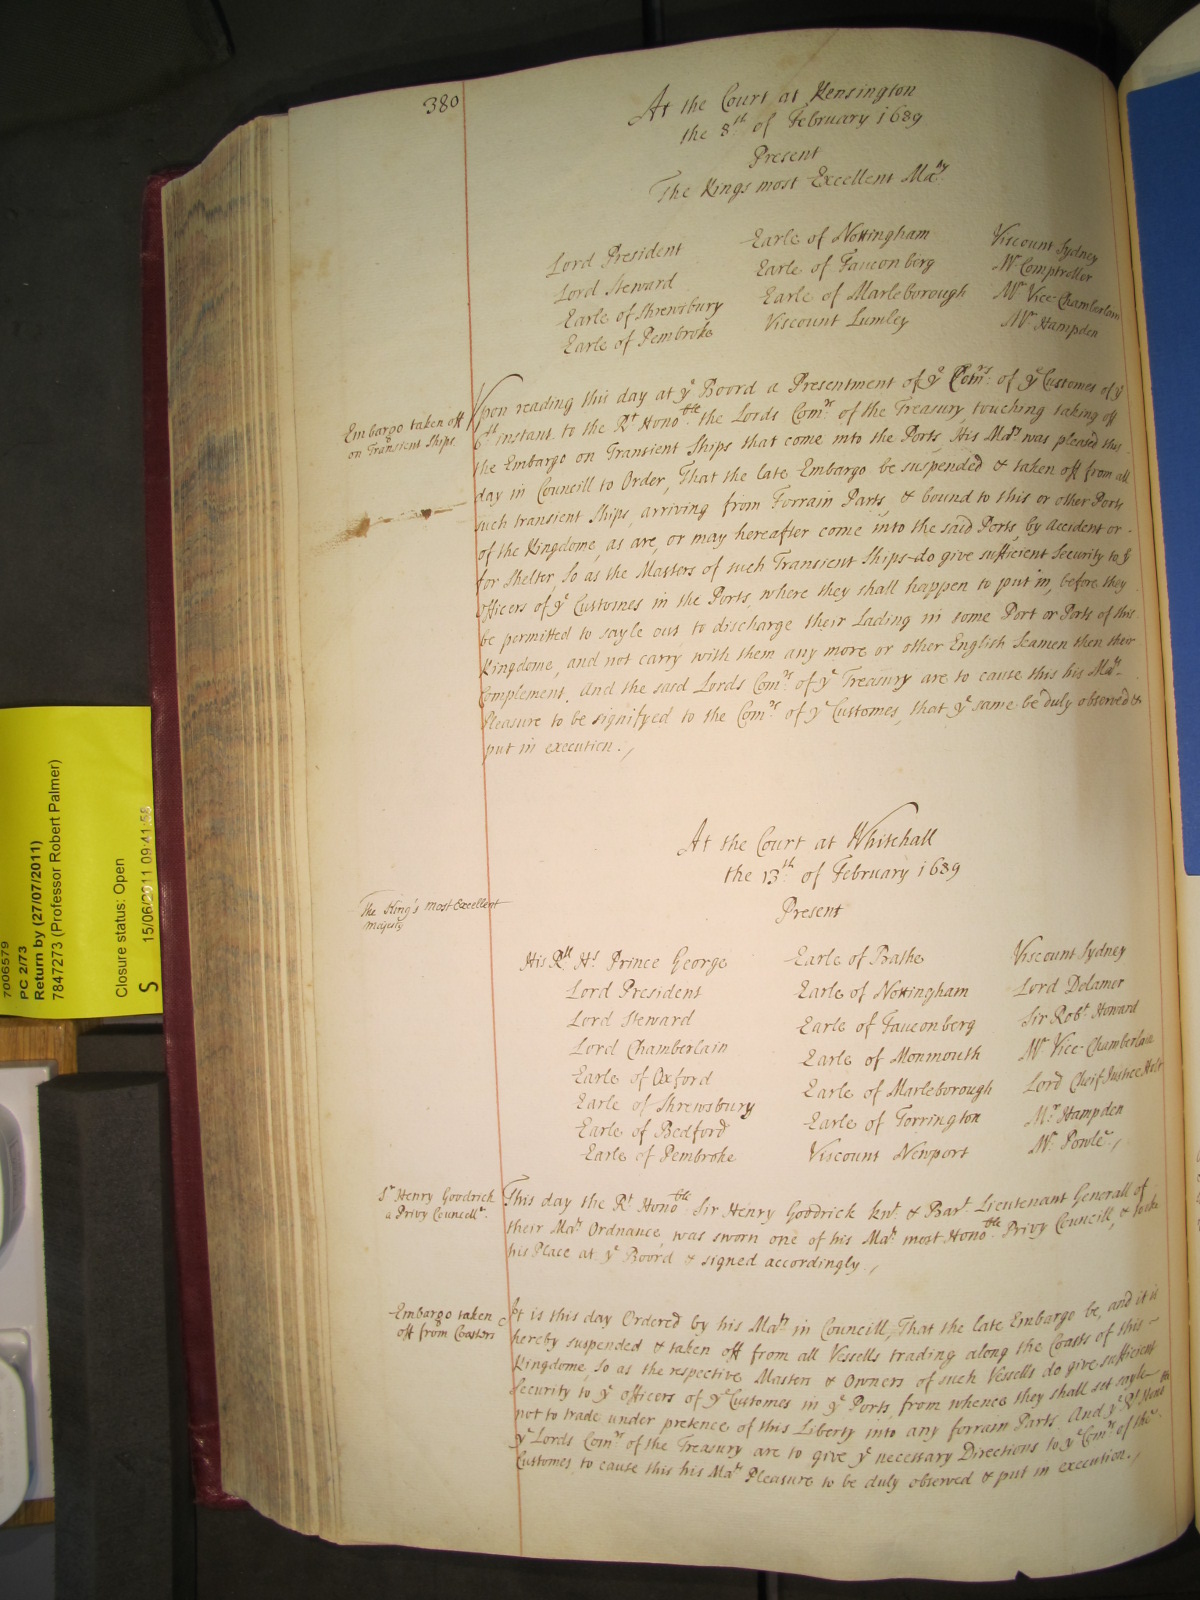 380
At the Court at Kensington
the 8th of February 1689
Present
The Kings most Excellent Maty
Lord President
Lord Steward
Earle of Shrewsbury
Earle of Pembroke
Earle of Nottingham
Earle of Fauconberg
Earle of Marleborough
Viscount Lumley
Viscount Sydney
Mr Comptroller
Mr Vice-Chamberlain
Mr Hampden
Embargo taken off
on Transient Ships.
Upon reading this day at ye Boord a Presentment of ye Comrs of ye Customes of ye
6th instant to the Rt Honoble the Lords Comrs of the Treasury touching taking off
the Embargo on Transient Ships that come into the Ports, His Maty was pleased this
day in Councill to Order, That the late Embargo be suspended & taken off from all
such transient Ships, arriving from Forrain Parts, & bound to this or other Ports
of the Kingdome, as are, or may hereafter come into the said Ports, by Accident or -
for Shelter, So as the Masters of such Transient Ships do give sufficient Security to ye
Officers of ye Customes in the Ports, where they shall happen to put in, before they
be permitted to sayle out to discharge their Lading in some Port or Ports of this
Kingdome, and not carry with them any more or other English Seamen then their
Complement. And the said Lords Comrs of ye Treasury are to cause this his Mats
Pleasure to be signifyed to the Comrs of ye Customes, that ye same be duly observed &
put in execution.,
At the Court at Whitehall
the 13th of February 1689
Present
The King's most Excellent
Majesty
His Rll Hs Prince George
Lord President
Lord Steward
Lord Chamberlain
Earle of Oxford
Earle of Shrewsbury
Earle of Bedford
Earle of Pembroke
Earle of Bathe
Earle of Nottingham
Earle of Fauconberg
Earle of Monmouth
Earle of Marleborough
Earle of Torrington
Viscount Newport
Viscount Sydney
Lord Delamer
Sir Robt Howard
Mr Vice-Chamberlain
Lord Cheif Justice Holt
Mr Hampden
Mr Powle.,
Sr Henry Goodrick
a Privy Councellr.
This day the Rt Honoble Sir Henry Goodrick Knt & Bart Lieutenant Generall of
their Mats Ordnance, was sworn one of his Mats most Honoble Privy Councill, & tooke
his Place at ye Boord & signed accordingly.,
Embargo taken
off from Coasters
It is this day Ordered by his Maty in Councill, That the late Embargo be, and it is
hereby suspended & taken off from all Vessells trading along the Coasts of this -
Kingdome, So as the respective Masters & Owners of such Vessells do give sufficient
Security to ye Officers of ye Customes in ye Ports, from whence they shall set sayle
not to trade under pretence of this Liberty into any forrain Parts. And ye Rt Honble
ye Lords Comrs of the Treasury are to give ye necessary Directions to ye Comrs of the
Customes, to cause this his Mats Pleasure to be duly observed & put in execution.,
7006579
PC 2/73
Return by (27/07/2011)
7847273 (Professor Robert Palmer)
Closure status: Open
S 15/06/2011 09:41:58